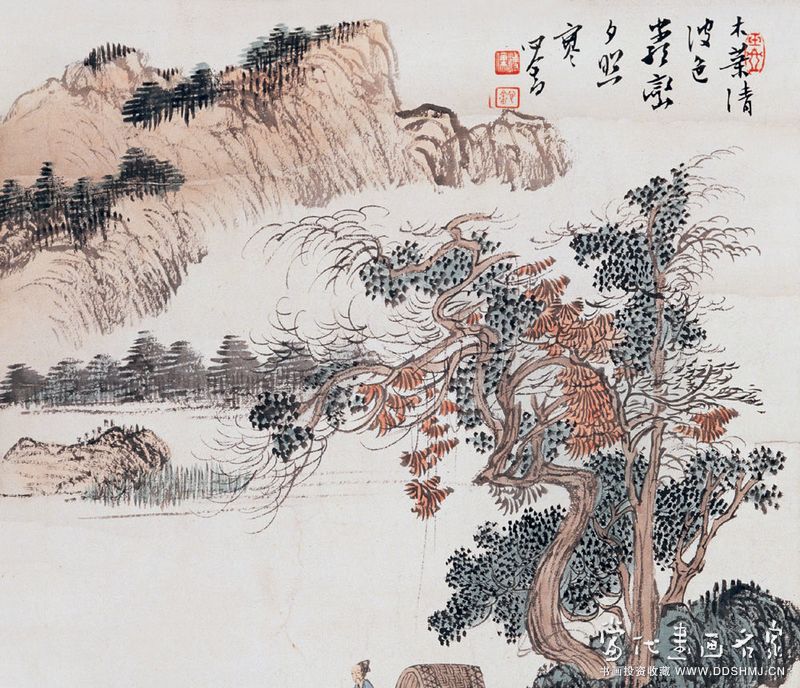 木葉清
波色
巒
夕照
寒
心畬
當代書画名家
书画投资收藏 WWW.DDSHMJ.CN